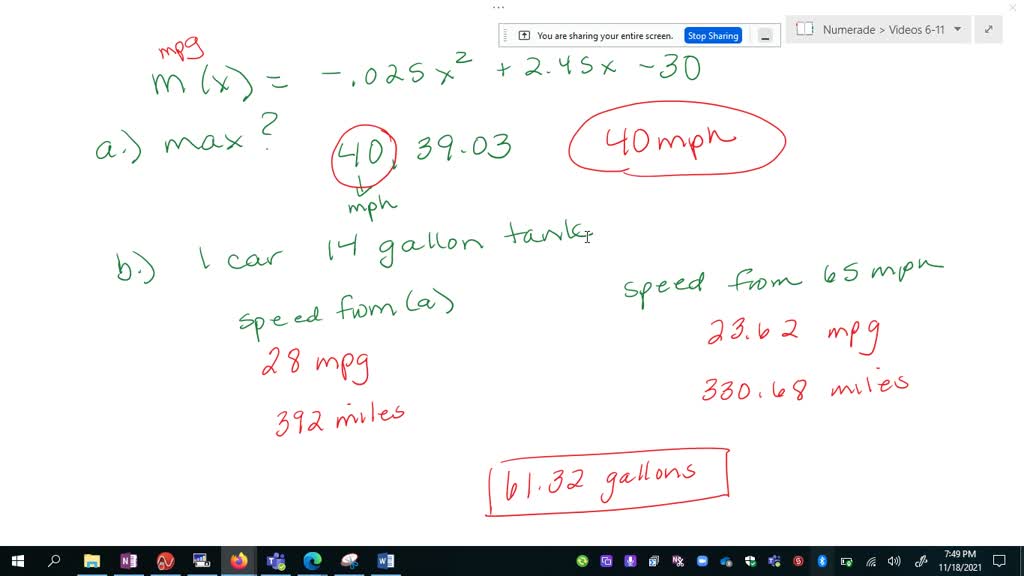 You are sharing your entire screen. Stop Sharing
Numerade > Videos 6-11
mpg
m(x) = -.025x² + 2.45x - 30
a.) max? 40, 39.03 40mph
mph
b.) 1 car 14 gallon tank
speed from (a) speed from 65 mph
28 mpg 23.62 mpg
392 miles 330.68 miles
61.32 gallons
7:49 PM
11/18/2021